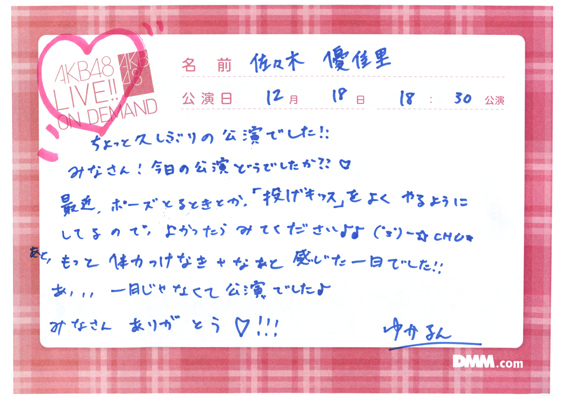 AKB48
LIVE!!
ON DEMAND
AKB
48
名 前 佐々木 優佳里
公演日 12月 18日 18 : 30 公演
ちょっと久しぶりの公演でした!!
みなさん!今日の公演どうでしたか?? ♡
最近、ポーズとるときとか、「投げキッス」をよく やるように
してるので、よかったらみてくださいよよ (˘³˘)ー☆ CHU★
あと、もっと 体力つけなきゃなあと 感じた一日でした!!
あ,,, 一日じゃなくて公演でしたよ
みなさん ありがとう ♡!!!
ゆかるん
DMM.com